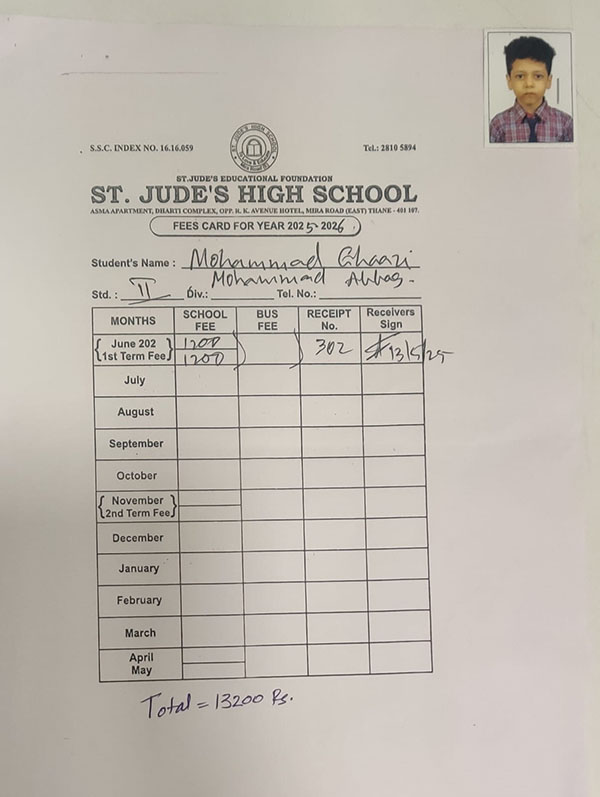 S.S.C. INDEX NO. 16.16.059
Tel.: 2810 5894
ST. JUDE'S HIGH SCHOOL
ST.JUDE'S EDUCATIONAL FOUNDATION
ST. JUDE'S HIGH SCHOOL
ASMA APARTMENT, DHARTI COMPLEX, OPP. R. K. AVENUE HOTEL, MIRA ROAD (EAST) THANE - 401 107.
FEES CARD FOR YEAR 2025-2026
Student's Name : Mohammad Ghaazi
Mohammad Abbas.
Std. : II Div.: Tel. No.:
MONTHS SCHOOL FEE BUS FEE RECEIPT No. Receivers Sign
June 202 1200
1st Term Fee 1200 302 13/5/25
July
August
September
October
November
2nd Term Fee
December
January
February
March
April
May
Total = 13200 Rs.